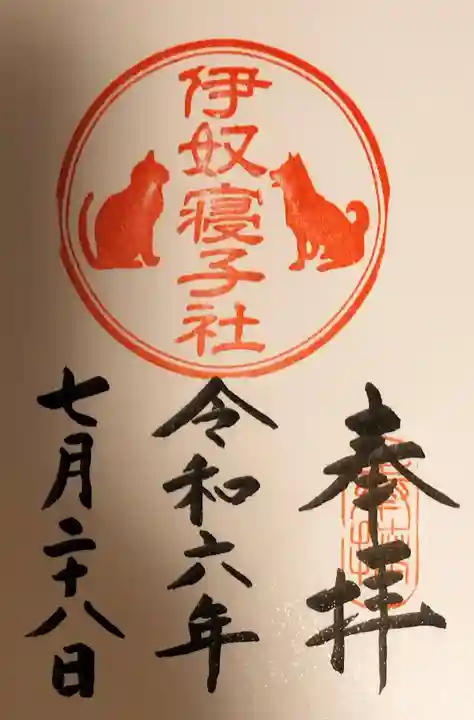 奉拝
伊奴寝子社
令和六年
七月二十八日